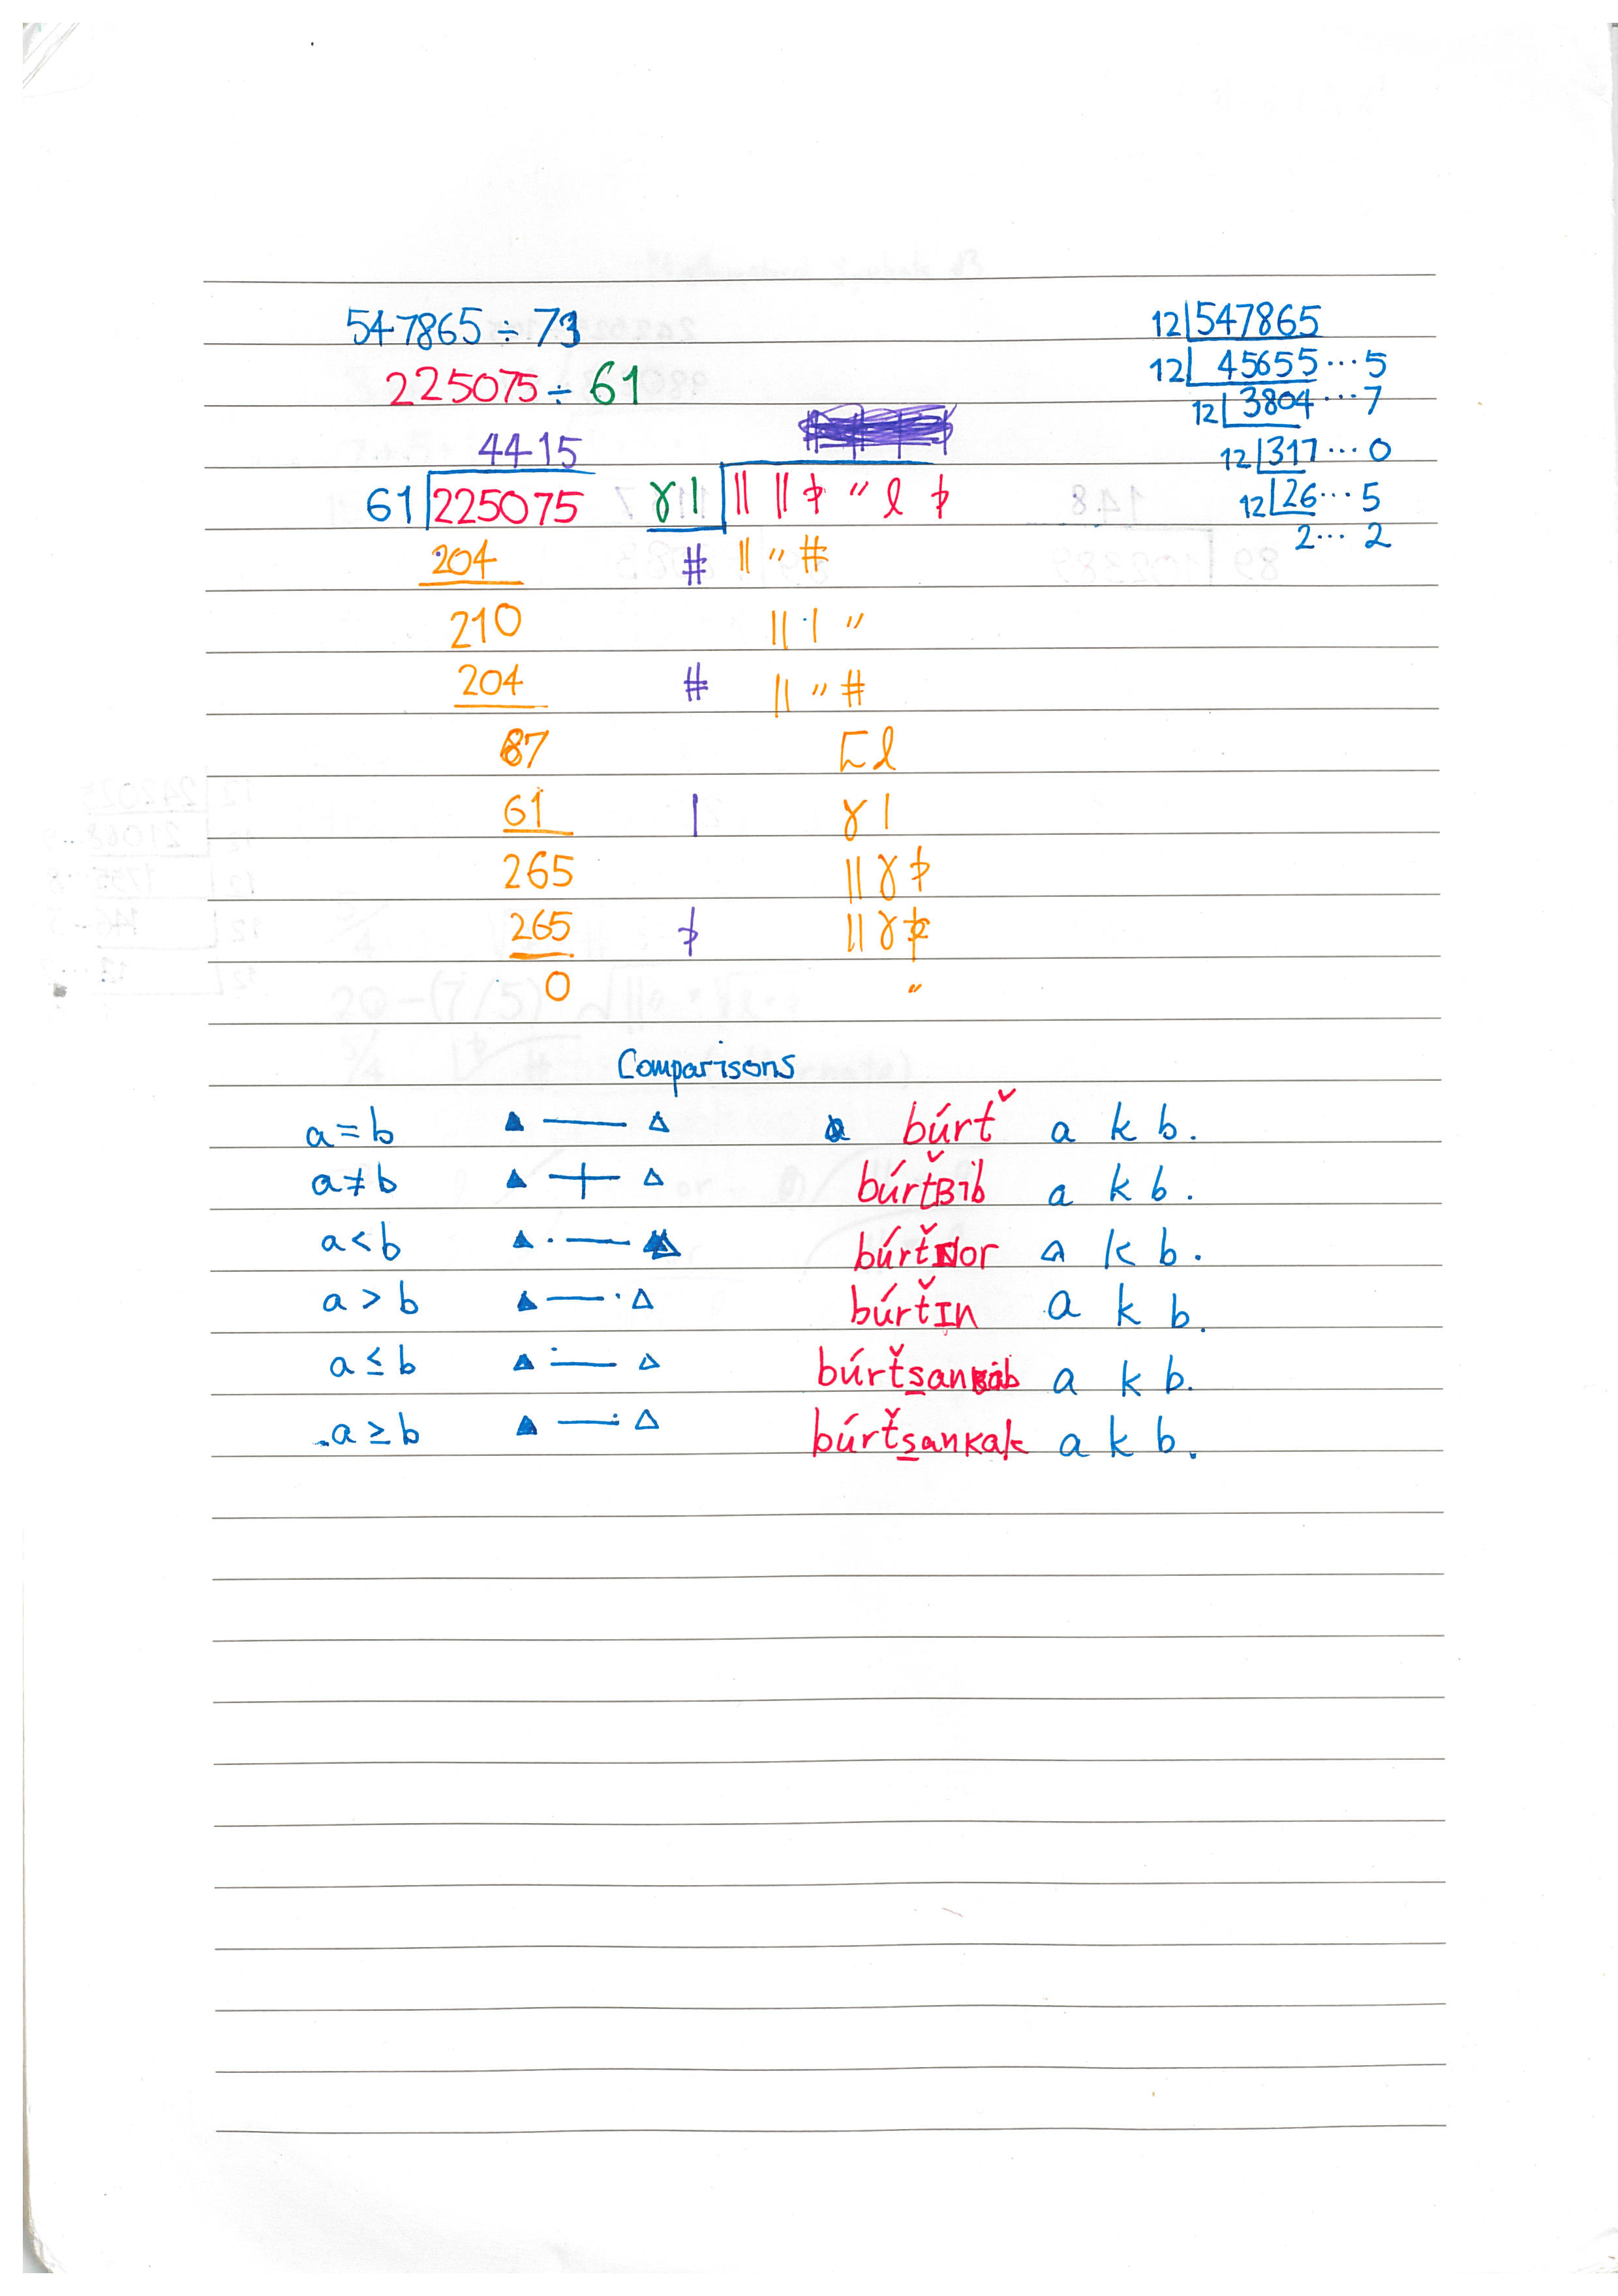 547865 ÷ 73 12 547865
225075 ÷ 61 12 45655 ... 5
12 3804 ... 7
4415 12 317 ... 0
61 225075 ɣ | || || ꝧ " ℓ ꝧ 12 26 ... 5
2 ... 2
204 # || " #
210 || | "
204 # || " #
87 ℓ
61 | ɣ |
265 || ɣ ꝧ
265 ꝧ || ɣ ꝧ
0 "
Comparisons
a = b ▲ — △ búrť a k b.
a ≠ b ▲ + △ búrťBib a k b.
a < b ▲ · — ▲ búrťNor a k b.
a > b ▲ — · △ búrťIn a k b.
a ≤ b ▲ ∸ △ a k b.
a ≥ b ▲ ∸ △ búrťsankak a k b.